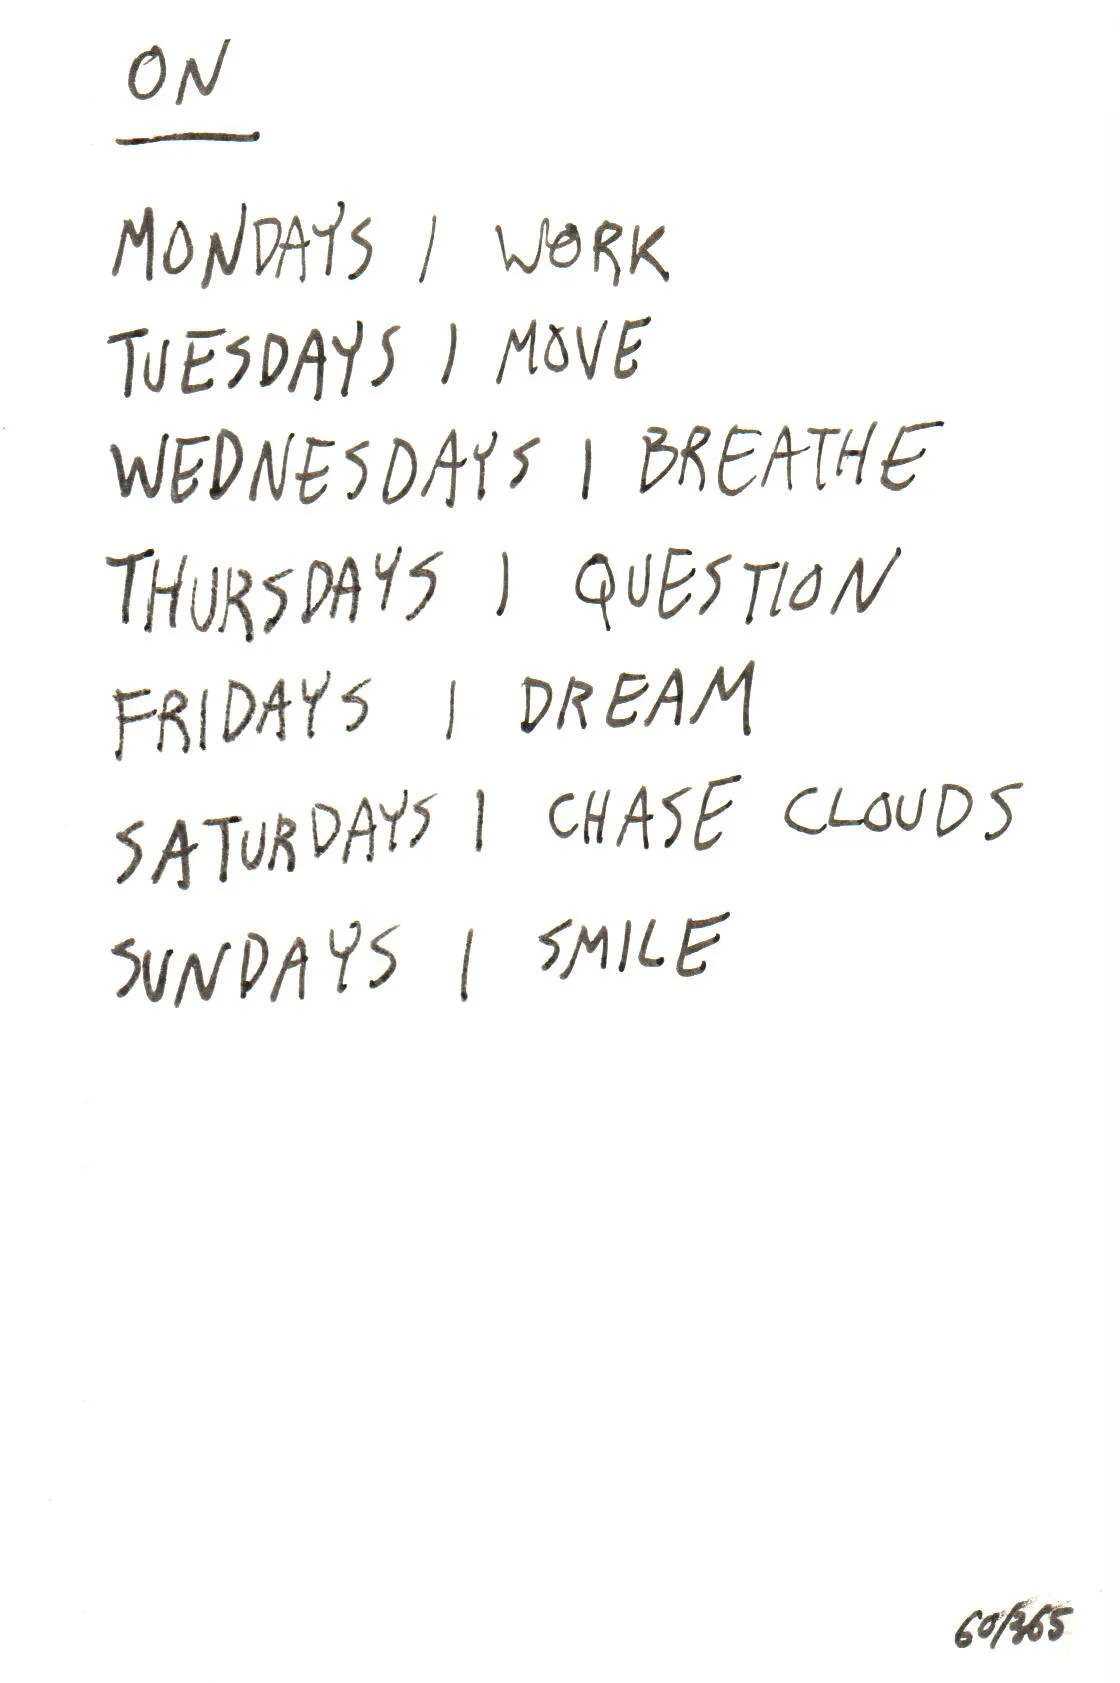 ON
MONDAYS I WORK
TUESDAYS I MOVE
WEDNESDAYS I BREATHE
THURSDAYS I QUESTION
FRIDAYS I DREAM
SATURDAYS I CHASE CLOUDS
SUNDAYS I SMILE
60/365